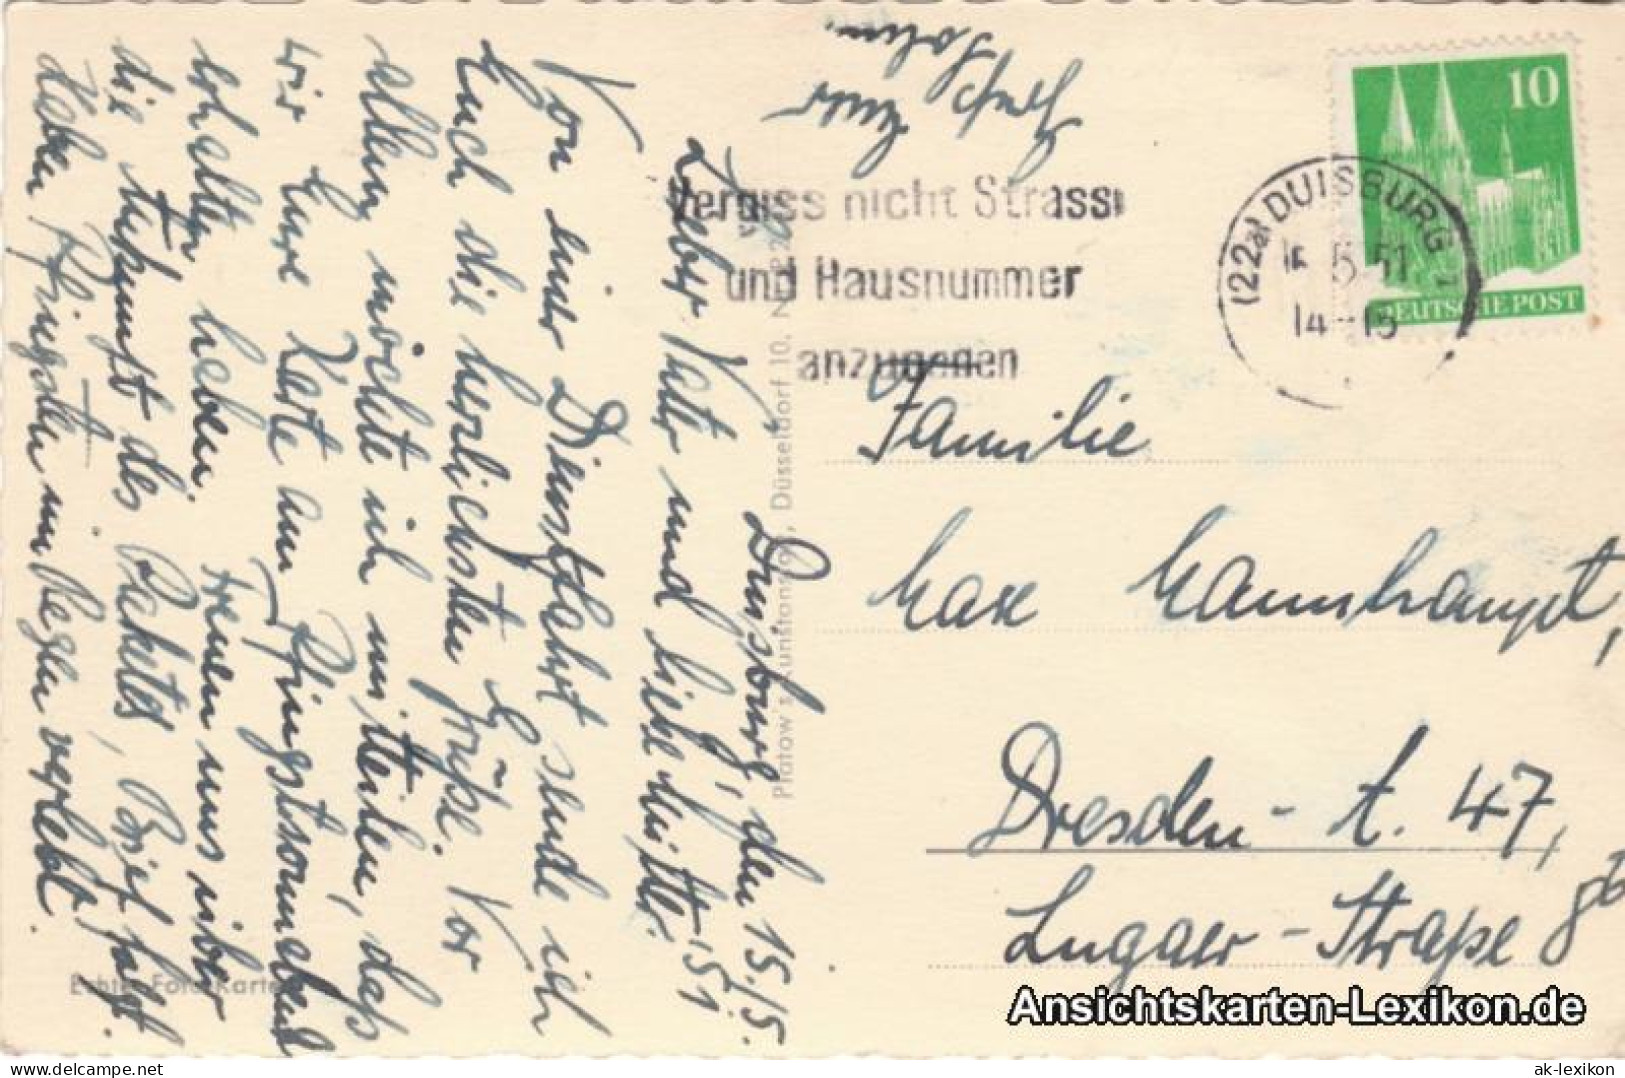 Duisburg, den 15./5. 51
Lieber Vater und liebe Mutter.
Von einer Dienstfahrt sende ich
Euch die herzlichsten Grüße. Vor
allem möchte ich mitteilen, daß
wir Eure Karte am Pfingstsonnabend
erhalten haben. Freuen uns über
die Ankunft des Paketes, Brief folgt.
Haben Pfingsten im Regen verlebt.
Euer
Vergiss nicht Strasse
und Hausnummer
anzugeben
(22a) DUISBURG
5.51
14-15
10
DEUTSCHE POST
Familie
Max Mannshaupt,
Dresden - A. 47,
Lugaer - Straße 8b
Platow's Kunstanstalt, Düsseldorf 10. Nr.
Echte Foto-Karte
Ansichtskarten-Lexikon.de
delcampe.net
ak-lexikon